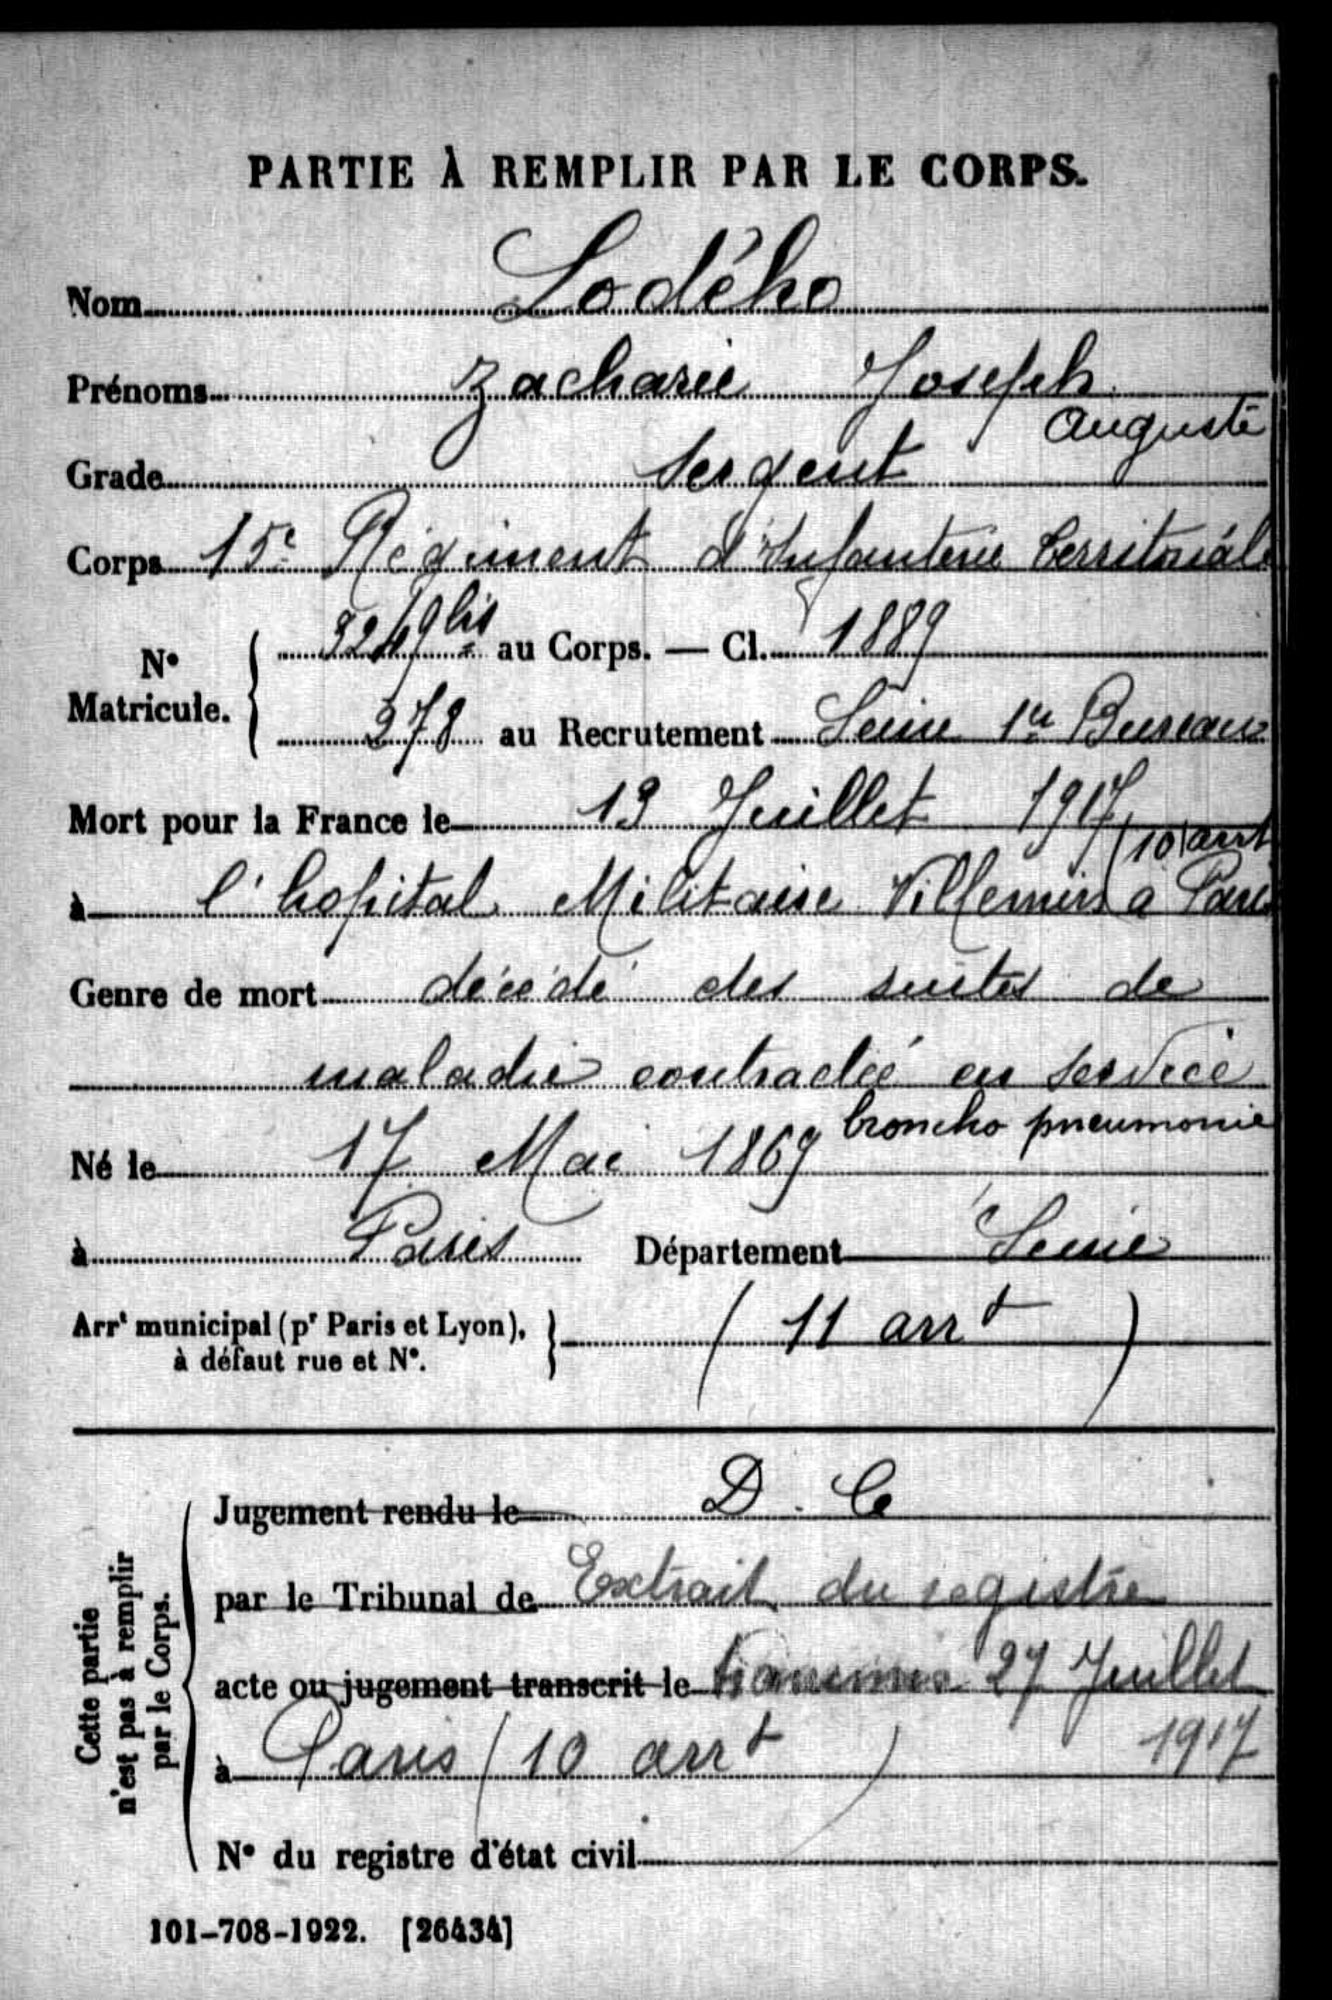 PARTIE À REMPLIR PAR LE CORPS.
Nom Lodého
Prénoms Zacharie Joseph
Auguste
Grade Sergent
Corps 15e Régiment d'Infanterie territorial
N° Matricule. 3249 bis au Corps. — Cl. 1889
278 au Recrutement Seine 1er Bureau
Mort pour la France le 13 Juillet 1917
(10 arrt
à l'hopital Militaire Villemin à Paris
Genre de mort décédé des suites de
maladie contractée en service
broncho pneumonie
Né le 17 Mai 1869
à Paris Département Seine
Arrt municipal (pr Paris et Lyon), à défaut rue et N°. (11 arrt)
Cette partie n'est pas à remplir par le Corps.
Jugement rendu le D. C
par le Tribunal de Extrait du registre
acte ou jugement transcrit le 27 Juillet
1917
à Paris (10 arrt)
N° du registre d'état civil
101-708-1922. [26434]